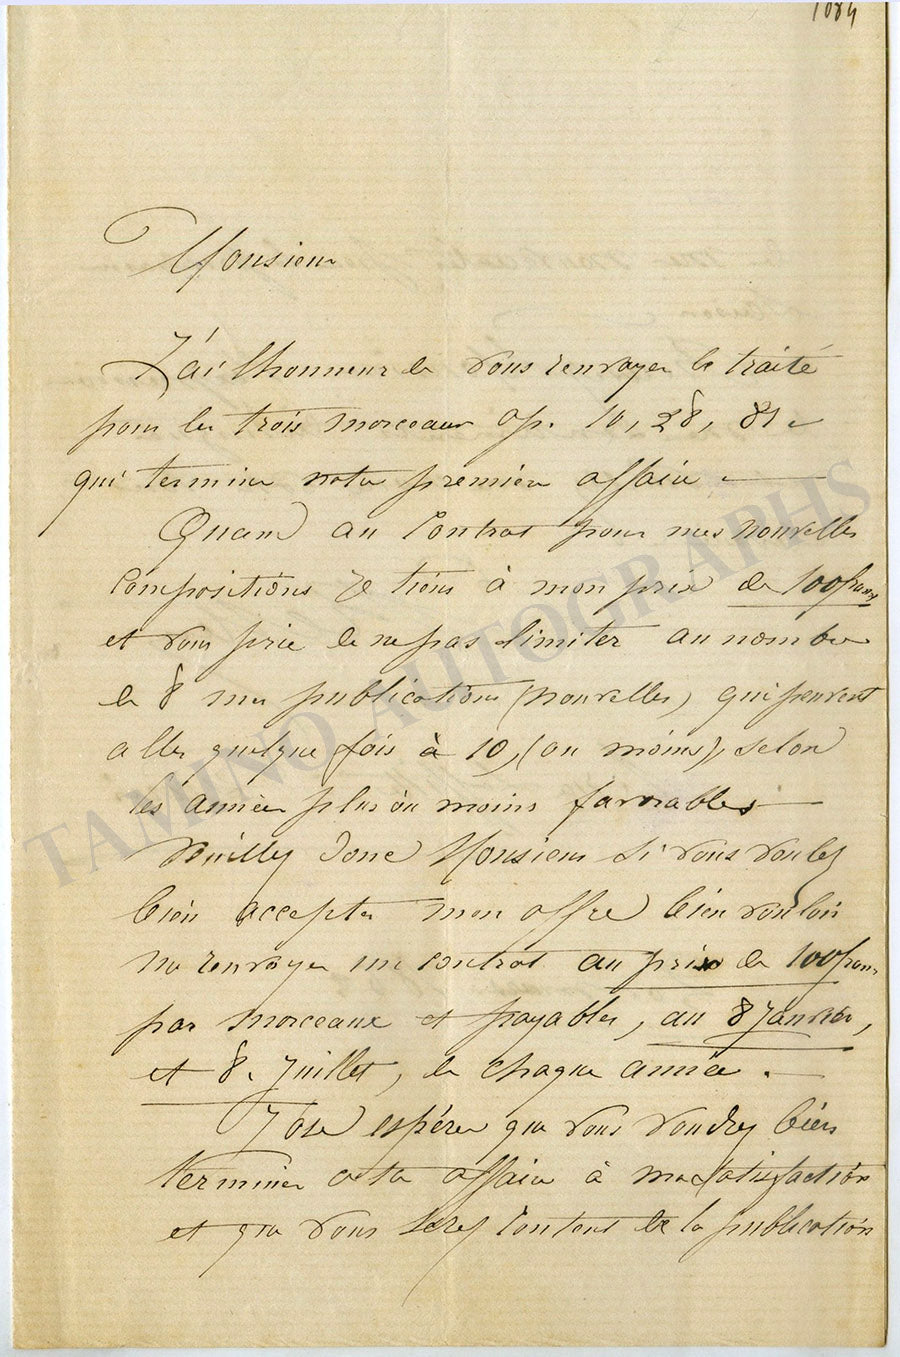 1084
Monsieur
J'ai l'honneur de vous renvoyer le traité
pour les trois morceaux op. 10, 28, 81 -
qui termine notre première affaire. —
Quand au Contrat pour mes nouvelles
Compositions je tiens à mon prix de 100 francs
et vous prie de ne pas limiter au nombre
de 8 mes publications (nouvelles) qui peuvent
aller quelque fois à 10, (ou moins), selon
les années plus ou moins favorables —
Veuillez donc Monsieur si vous voulez
bien accepter mon offre bien vouloir
me renvoyer un contrat au prix de 100 francs
par morceaux et payables, au 8 Janvier,
et 8. Juillet, de chaque année. —
J'ose espérer que vous voudrez bien
terminer cette affaire à ma satisfaction
et que vous serez content de la publication
TAMINO AUTOGRAPHS